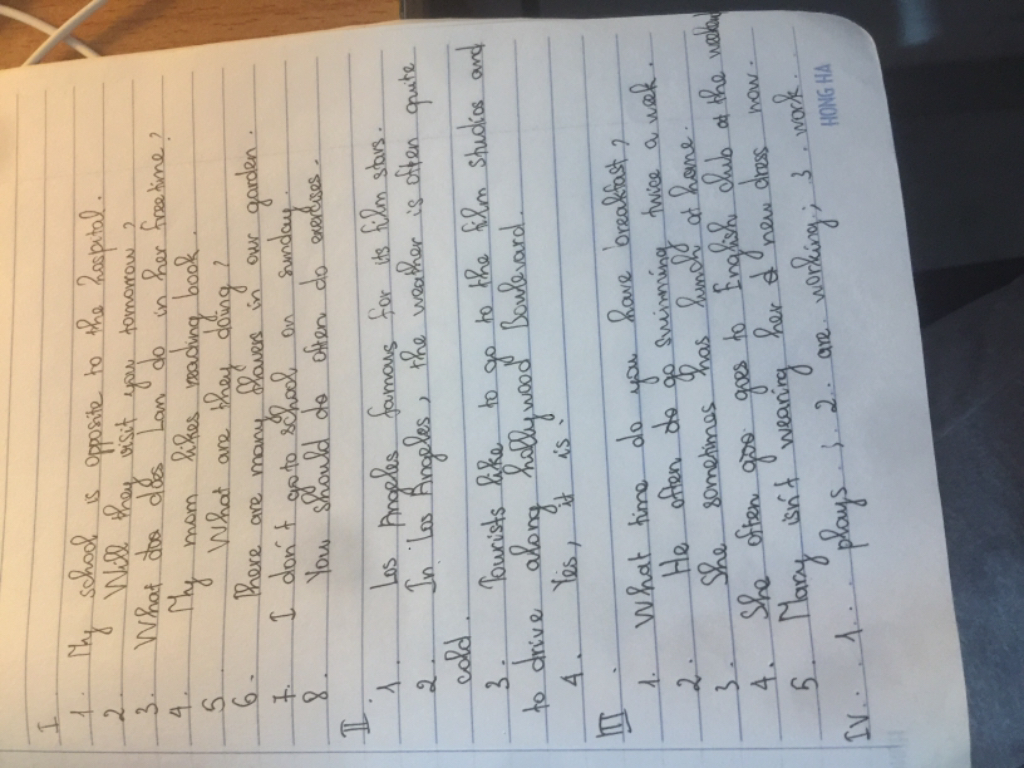 I
1. My school is opposite to the hospital.
2. Will they visit you tomorrow?
3. What does Lan do in her free time?
4. My mom likes reading book.
5. What are they doing?
6. There are many flowers in our garden.
7. I don't go to school on sunday.
8. You should do often do exercises.
II
1. Los Angeles famous for its film stars.
2. In Los Angeles, the weather is often quite
cold.
3. Tourists like to go to the film studios and
to drive along hollywood Boulevard.
4. Yes, it is.
III.
1. What time do you have breakfast?
2. He often do go swimming twice a week.
3. She sometimes has lunch at home.
4. She often goes to English club at the
5. Mary isn't wearing her new dress now.
IV. 1. plays; 2. are working; 3. work.
HONG HA